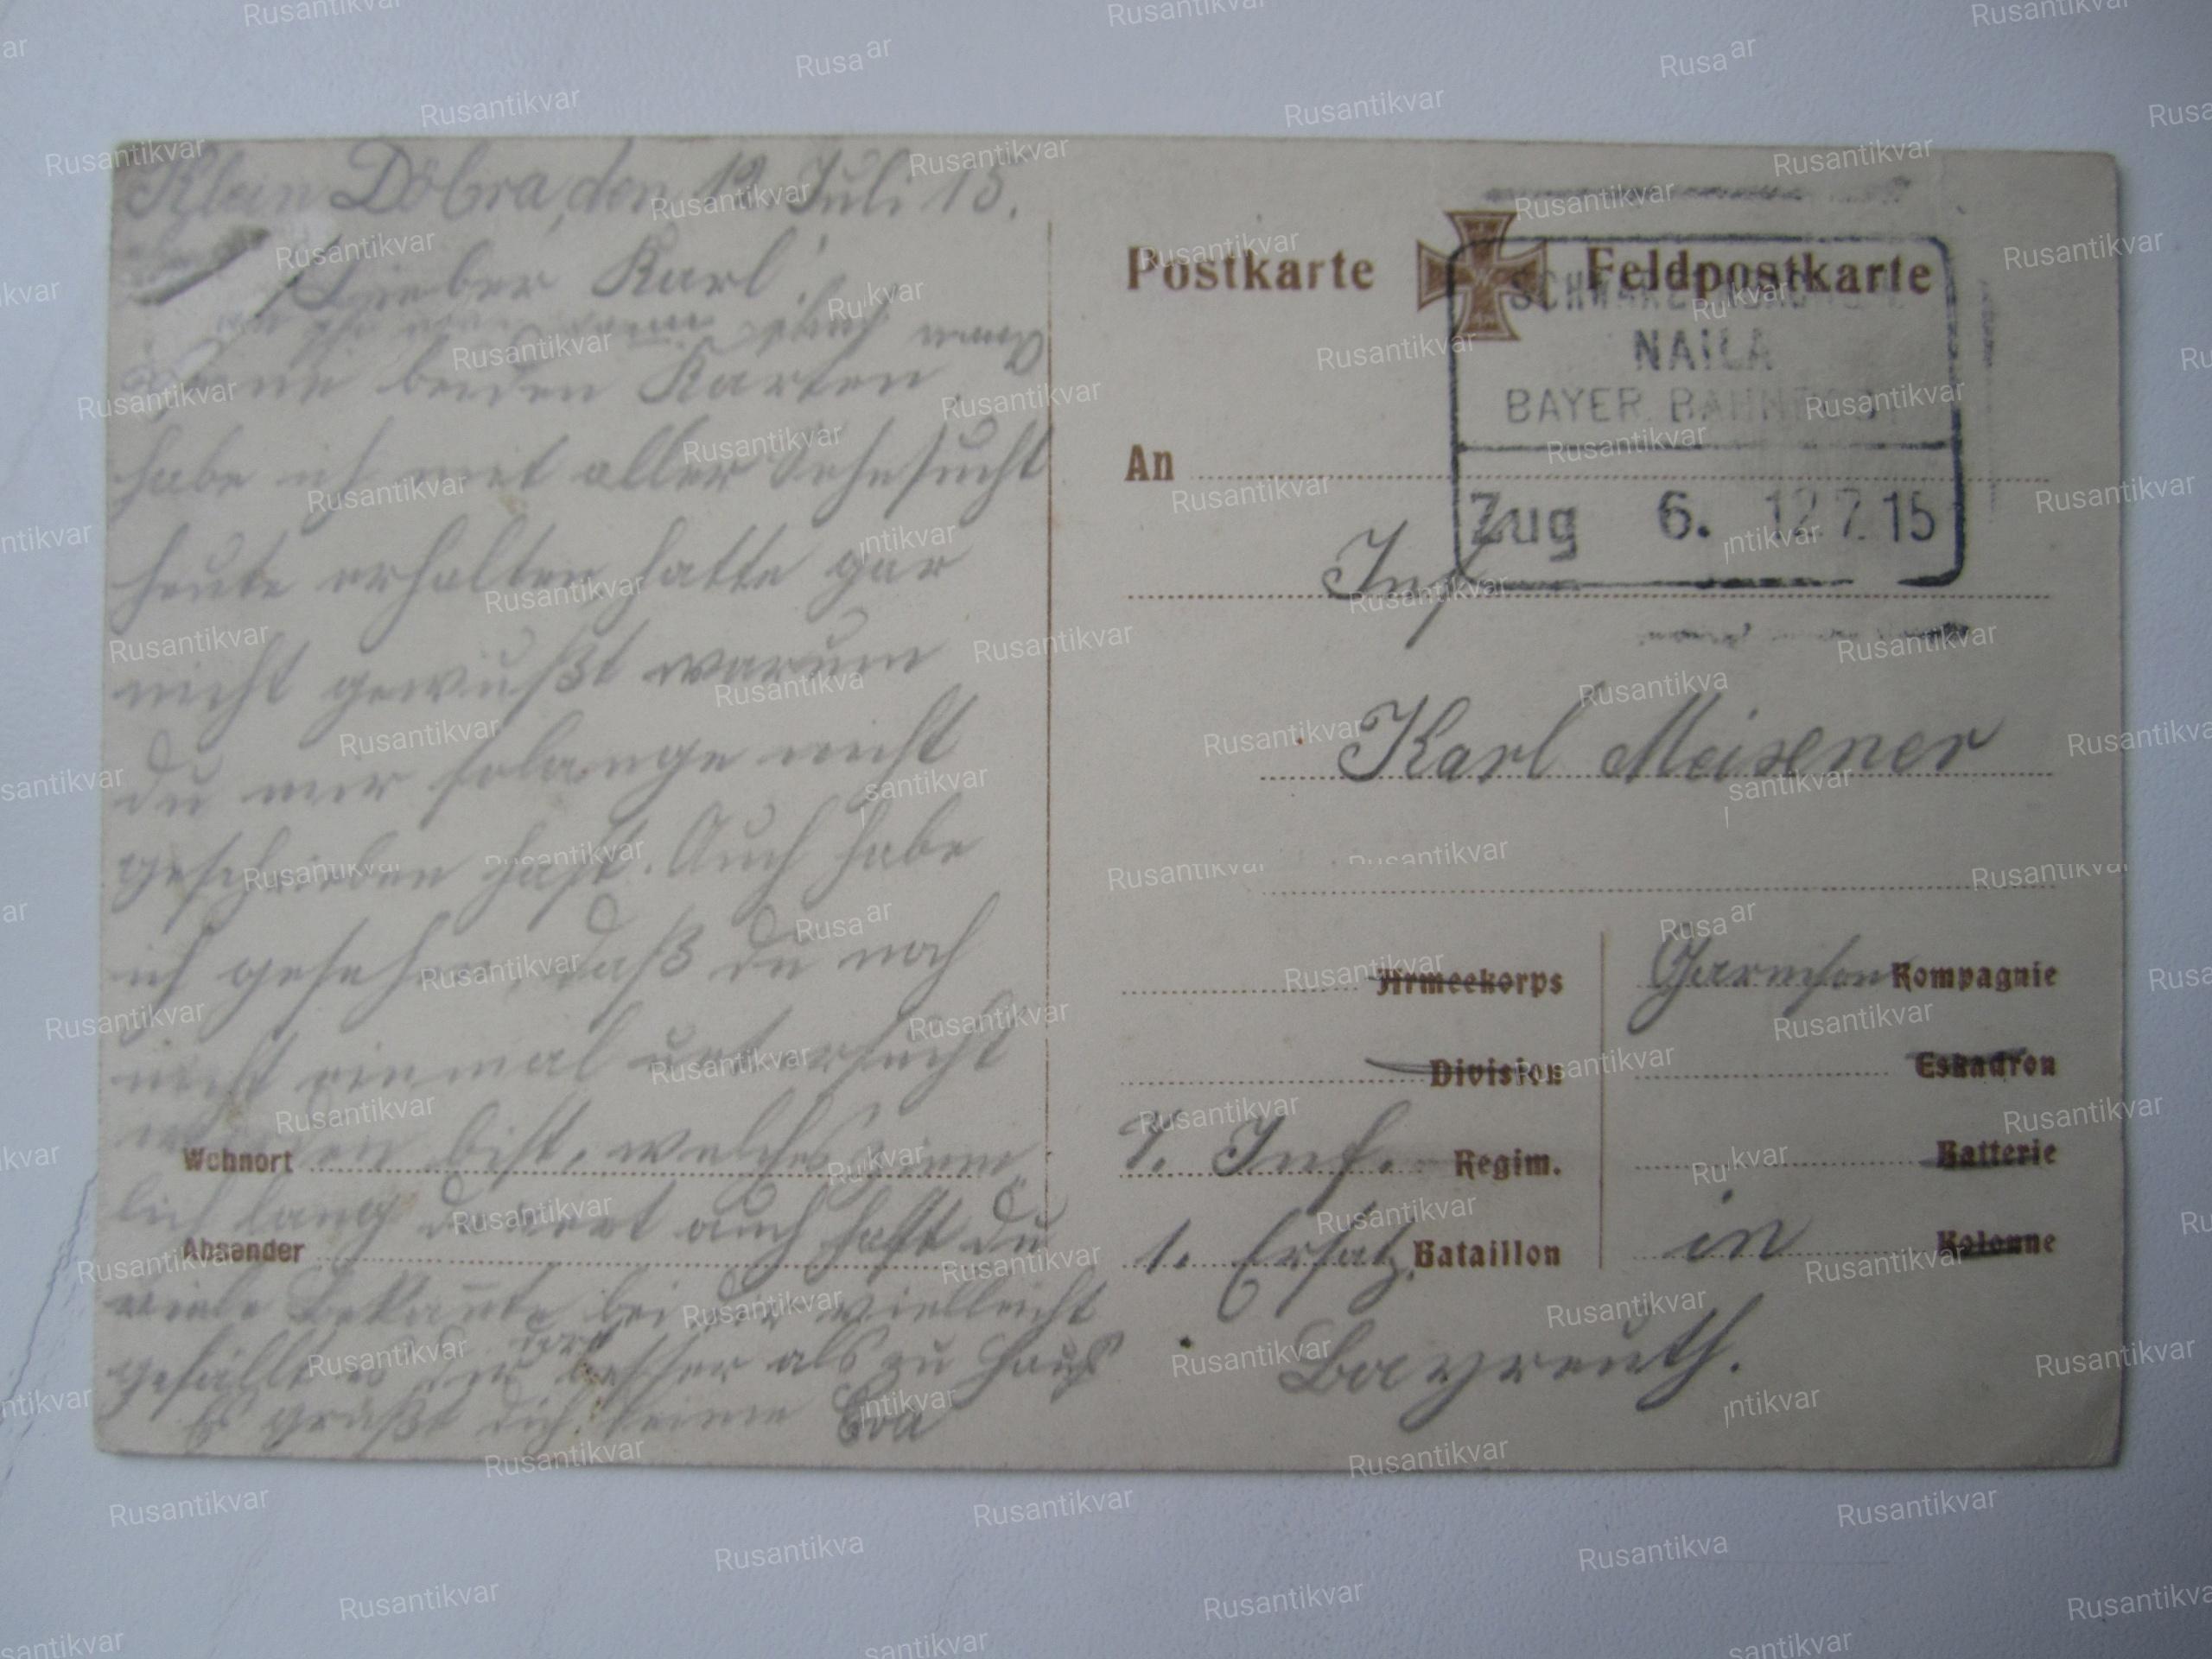 Klein Döbra, den 12. Juli 15.
Lieber Karl!
Deine beiden Karten
habe ich mit aller Sehnsucht
heute erhalten hatte gar
nicht gewußt warum
du mir solange nicht
geschrieben hast. Auch habe
ich gesehen, daß du noch
nicht einmal untersucht
worden bist, welches ziem
lich lang dauert auch hast du
viele Bekannte bei dir vielleicht
gefällt es dir dort besser als zu Haus
Es grüßt dich deine Eva
Wohnort
Absender
Postkarte Feldpostkarte
SCHWARZENBACH
NAILA
BAYER. BAHNPOST
Zug 6. 12 7. 15
An
Inf
Karl Meisener
Armeekorps
Division
7. Inf. Regim.
1. Ersatz Bataillon
Garnison Kompagnie
Eskadron
Batterie
in Kolonne
Bayreuth.
Rusantikvar